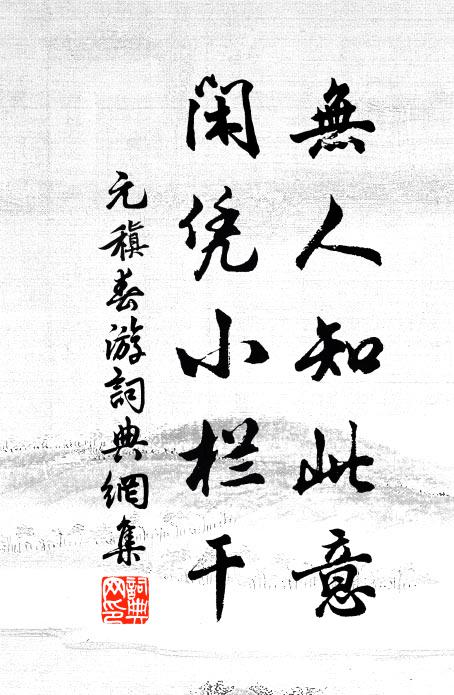 無人知此意
闲凭小栏干
元稹春游詞典網集
詞典